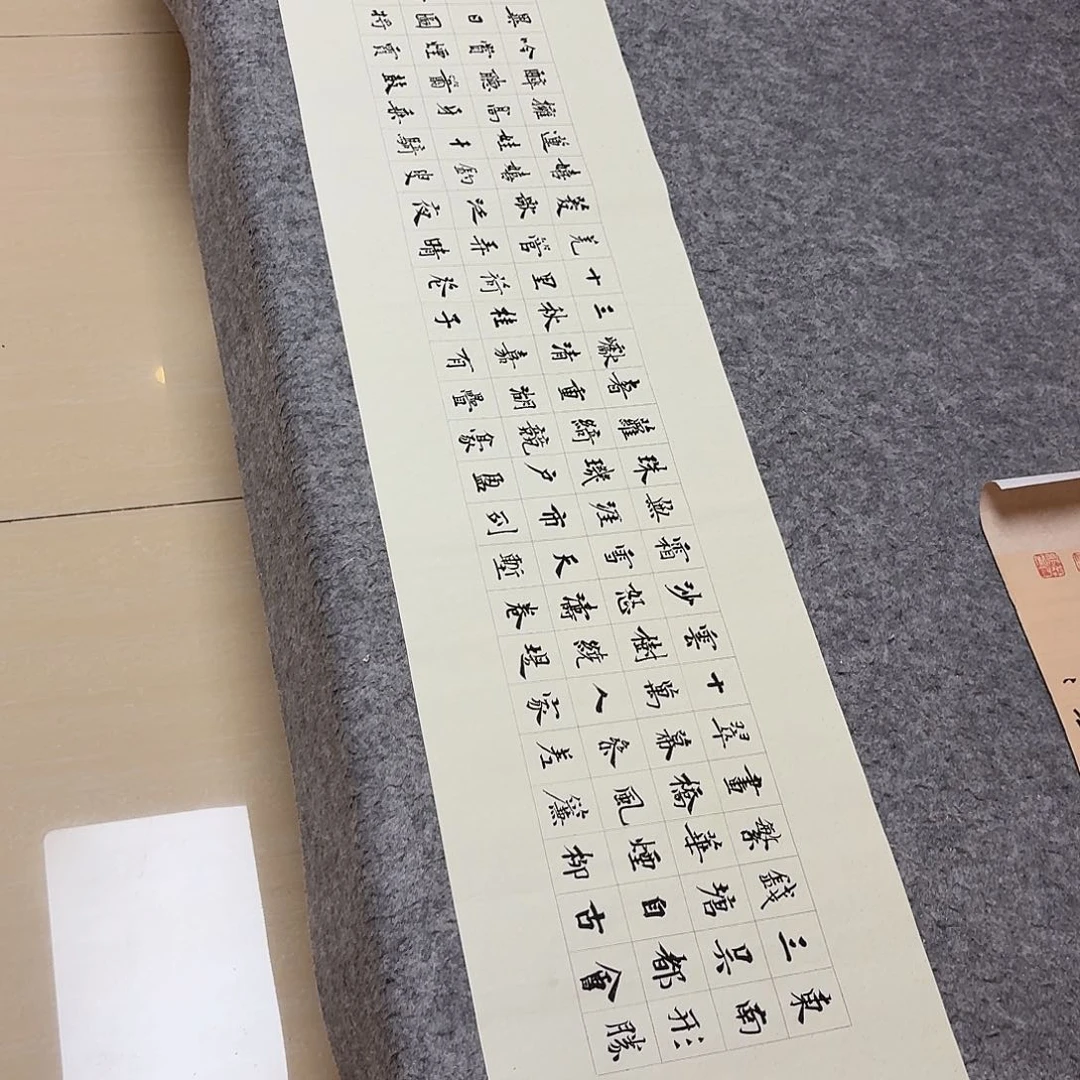 東南形勝
三吳都會
錢塘自古
繁華煙柳
畫橋風簾
翠幕參差
十萬人家
雲樹繞堤
沙怒濤卷
霜雪天塹
無涯市列
珠璣戶盈
羅綺競豪
奢重湖疊
巘清嘉有
三秋桂子
十里荷花
羌管弄晴
菱歌泛夜
嬉嬉釣叟
蓮娃千騎
擁高牙乘
醉聽簫鼓
吟賞煙霞
異日圖將